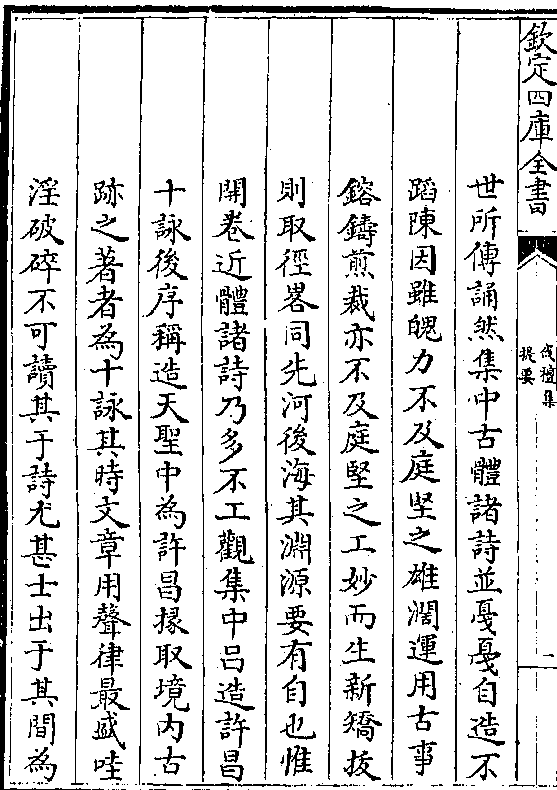 欽定四庫全書
伐檀集
提要
一
世所傳誦然集中古體諸詩並戞戞自造不
蹈陳因雖魄力不及庭堅之雄濶運用古事
鎔鑄煎裁亦不及庭堅之工妙而生新矯拔
則取徑畧同先河後海其淵源要有自也惟
開卷近體諸詩乃多不工觀集中吕造許昌
十詠後序稱造天聖中為許昌掾取境内古
跡之著者為十詠其時文章用聲律最盛哇
淫破碎不可讀其于詩尤甚士出于其間為